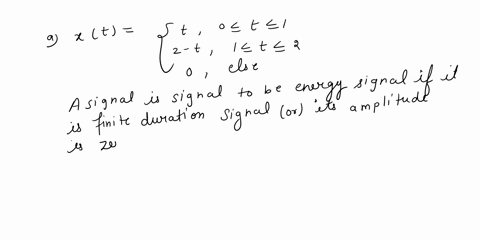 a) x(t) = { t, 0 ≤ t ≤ 1
2-t, 1 ≤ t ≤ 2
0, else
A signal is signal to be energy signal if it
is finite duration signal (or) its amplitude
is ze